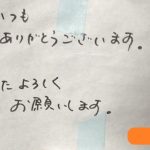 いつも
ありがとうございます。
たよろしく
お願いします。